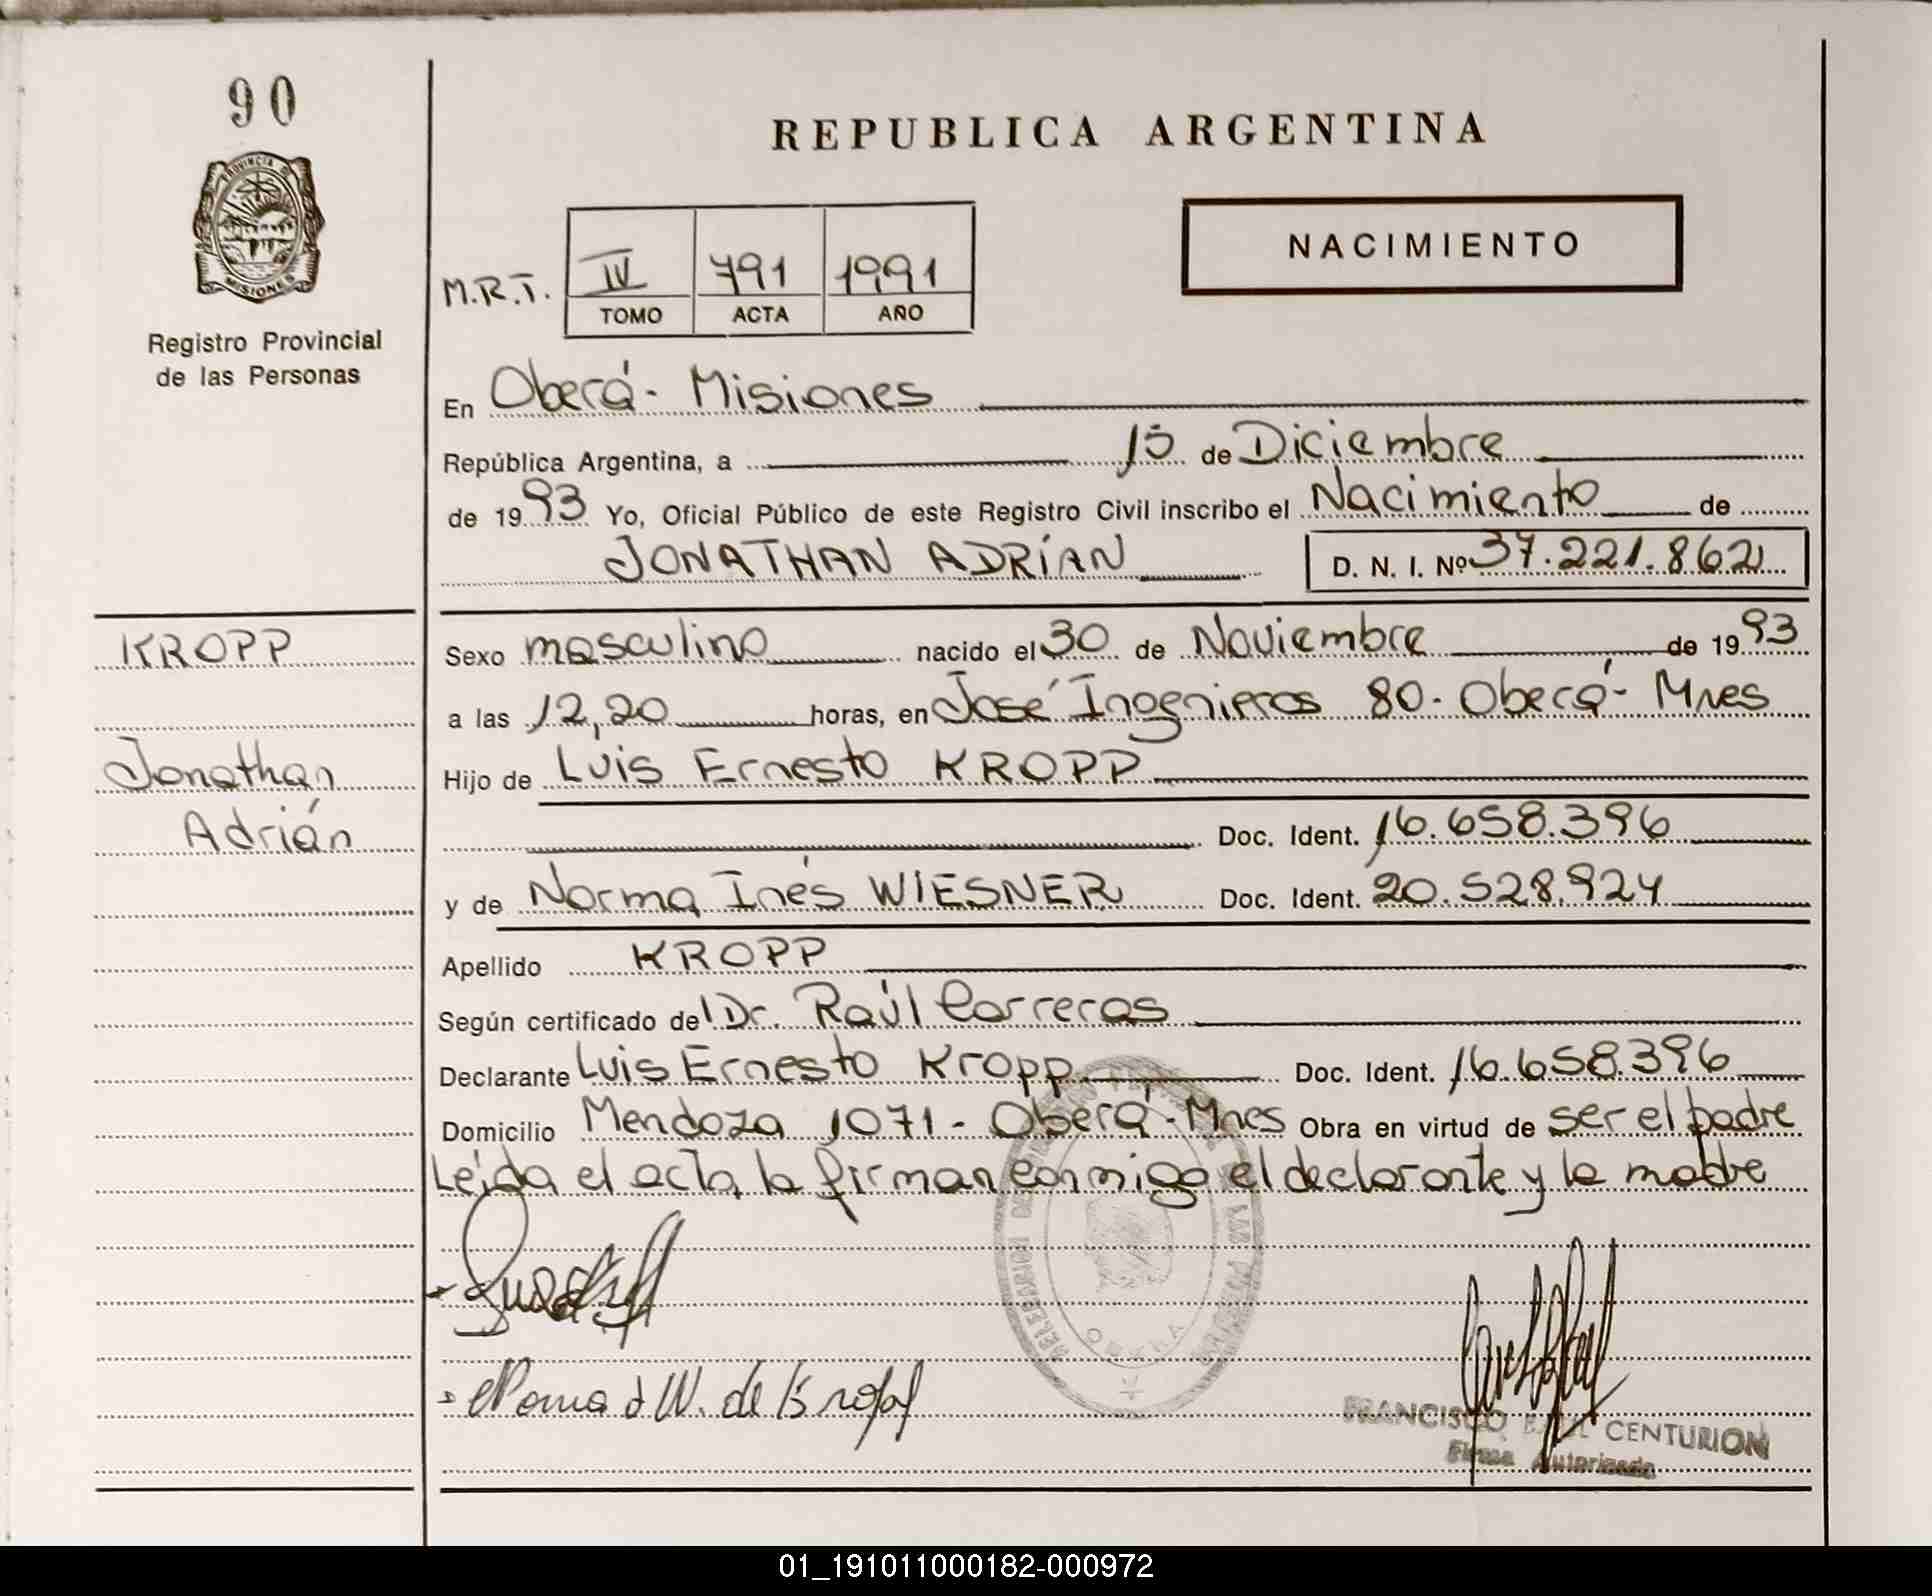 90
PROVINCIA DE
MISIONES
Registro Provincial
de las Personas
REPUBLICA ARGENTINA
NACIMIENTO
M.R.T. IV 791 1991
TOMO ACTA AÑO
En Oberá - Misiones
República Argentina, a 15 de Diciembre
de 1993 Yo, Oficial Público de este Registro Civil inscribo el Nacimiento de
JONATHAN ADRIÁN D. N. I. Nº 37.221.862
KROPP
Jonathan
Adrián
Sexo masculino nacido el 30 de Noviembre de 1993
a las 12,20 horas, en José Ingenieros 80 - Oberá - Mnes
Hijo de Luis Ernesto KROPP
Doc. Ident. 16.658.396
y de Norma Inés WIESNER Doc. Ident. 20.528.924
Apellido KROPP
Según certificado del Dr. Raúl Carreras
Declarante Luis Ernesto Kropp Doc. Ident. 16.658.396
Domicilio Mendoza 1071 - Oberá - Mnes Obra en virtud de ser el padre
Leída el acta, la firman conmigo el declarante y la madre
W. de Kropp
OBERA
FRANCISCO CENTURION
Firma Autorizada
01_191011000182-000972